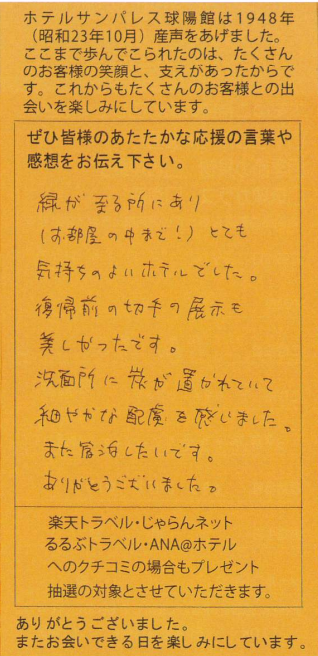 ホテルサンパレス球陽館は1948年
（昭和23年10月）産声をあげました。
ここまで歩んでこられたのは、たくさん
のお客様の笑顔と、支えがあったからで
す。これからもたくさんのお客様との出
会いを楽しみにしています。
ぜひ皆様のあたたかな応援の言葉や
感想をお伝え下さい。
緑が至る所にあり
(お部屋の中まで！) とても
気持ちのよいホテルでした。
復帰前の切手の展示も
美しかったです。
洗面所に炭が置かれていて
細やかな配慮を感じました。
また宿泊したいです。
ありがとうございました。
楽天トラベル・じゃらんネット
るるぶトラベル・ANA@ホテル
へのクチコミの場合もプレゼント
抽選の対象とさせていただきます。
ありがとうございました。
またお会いできる日を楽しみにしています。